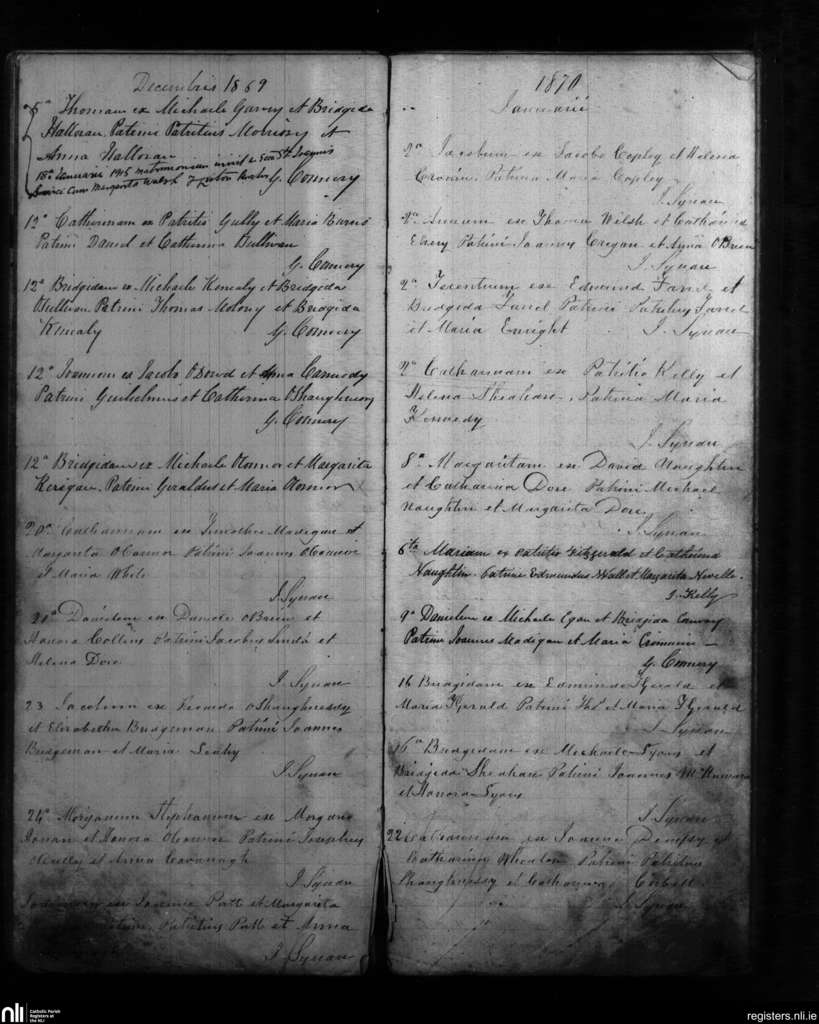 Decembris 1869
5a Thomam ex Michaele Garvy et Bridgida
Halloran Patrini Patritius Morrissy et
Anna Halloran
18a Januarii 1915 matrimonium inivit
cum Margarita Walsh G. Connery
12a Catherinam ex Patritio Gully et Maria Burns
Patrini Daniel et Catherina Sullivan
G. Connery
12a Bridgidam ex Michaele Kenealy et Bridgida
Sullivan Patrini Thomas Molony et Bridgida
Kenealy G. Connery
12a Joannem ex Jacobo O'Dowd et Anna Carmody
Patrini Guilielmus et Catherina O'Shaughnessy
G. Connery
12a Bridgidam ex Michaele O'Connor et Margarita
Kerigan Patrini Geraldus et Maria O'Connor
20a Catharinam ex Timotheo Madigan et
Margarita O'Connor Patrini Joannes O'Connor
et Maria White
J. Synan
21a Davidem ex Daniele O'Brien et
Honora Collins Patrini Jacobus et
Helena Dore
J. Synan
23 Jacobum ex Ricardo O'Shaughnessy
et Elizabetha Bridgeman Patrini Joannes
Bridgeman et Maria Leahy
J. Synan
24a Morganum Stephanum ex Morgano
et Honora O'Connor Patrini Josephus
et Anna Cavanagh
J. Synan
ex Joanne Patt et Margarita
Patrini Patritius Patt et Anna
J. Synan
1870
Januarii
2a Jacobum ex Jacobo Copley et Helena
Cronin Patrina Maria Copley
J. Synan
2a Annam ex Thoma Welsh et Catharina
Patrini Joannes Cregan et Anna O'Brien
J. Synan
2a Terentium ex Edmund Farrel et
Bridgida Farrel Patrini Patritius Farrel
et Maria Enright J. Synan
2a Catharinam ex Patritio Kelly et
Helena Sheahan, Patrina Maria
Kennedy
J. Synan
8a Margaritam ex David Naughten
et Catharina Dore Patrini Michael
Naughten et Margarita Dore
J. Synan
6ta Mariam ex Patritio Fitzgerald et Catherina
Naughtin Patrini Edmundus Wall et Margarita Neville
J. Kelly
9a Danielem ex Michaele Egan et Bridgida Conroy
Patrini Joannes Madigan et Maria Cremmin
G. Connery
16 Bridgidam ex Edmundo FGerald et
Maria FGerald Patrini Ths et Maria FGerald
J. Synan
16a Bridgidam ex Michaele Lyons et
Bridgida Sheahan Patrini Joannes McNamara
et Honora Lyons
J. Synan
22 Catharinam ex Joanne Dempsy et
Catharina Whealon Patrini Patritius
Shaughnessy et Catharina Corbett
J. Synan
nli
Catholic Parish
Registers at
the NLI
registers.nli.ie